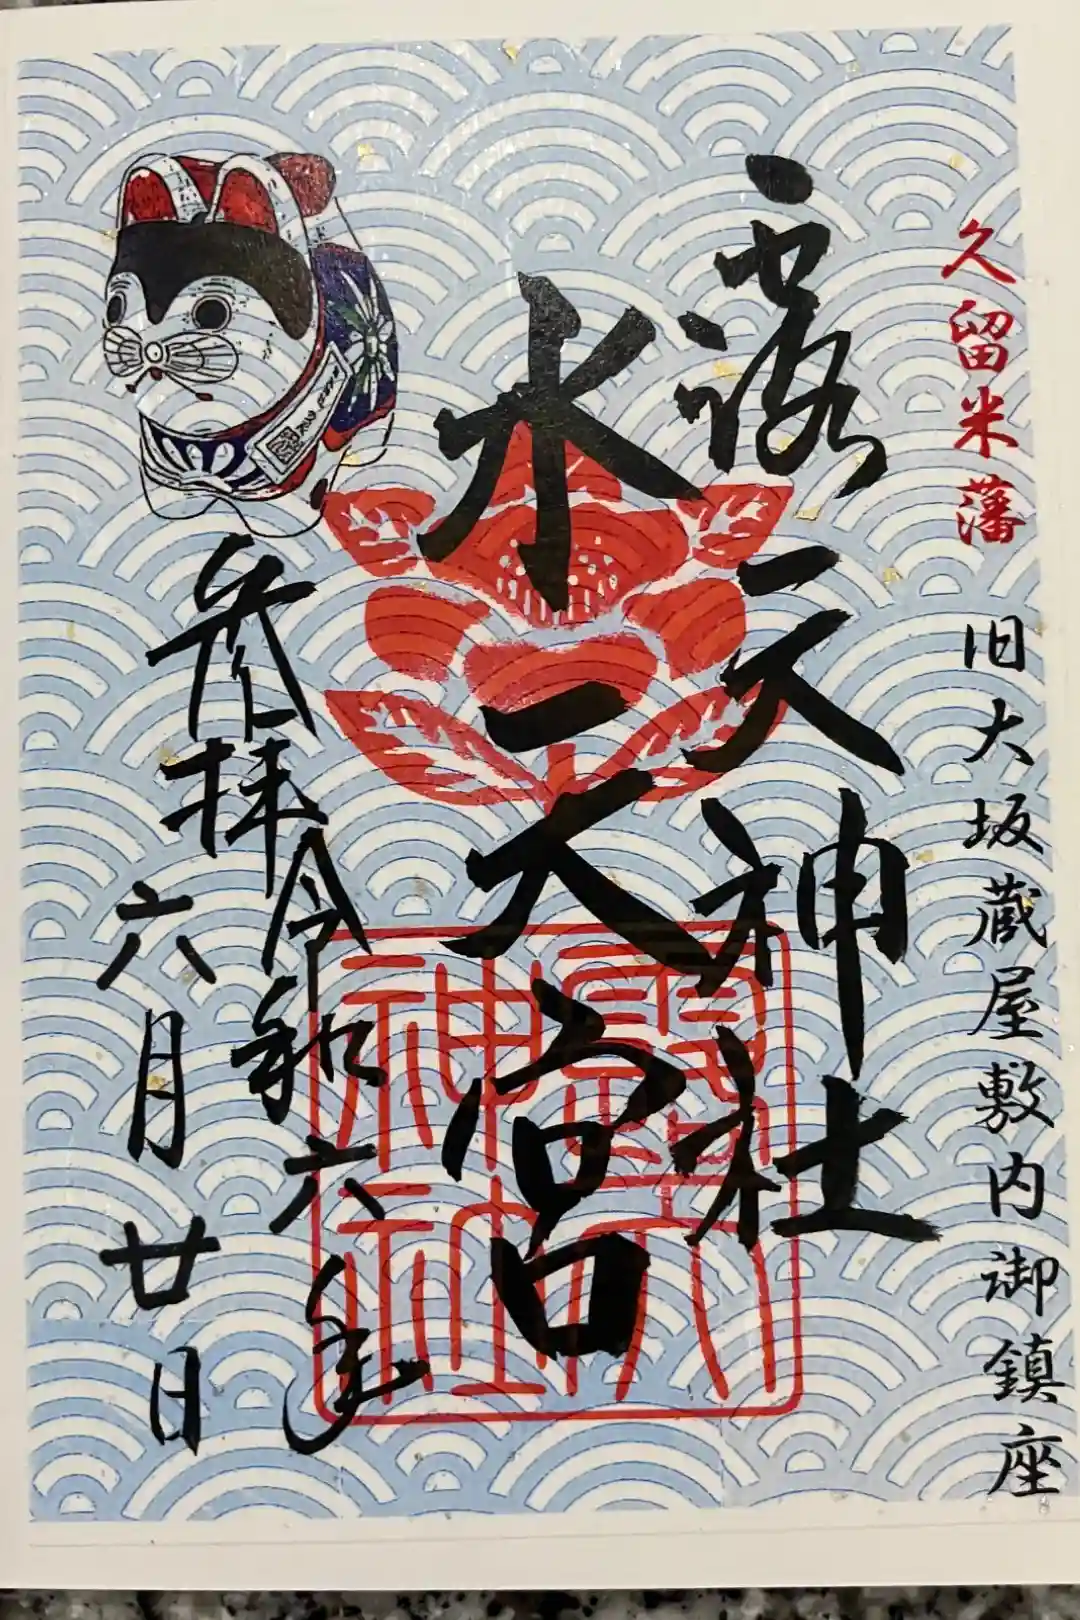 久留米藩 旧大坂蔵屋敷内御鎮座
露天神社
水天宮
参拝令和六年
六月廿日
露天神社